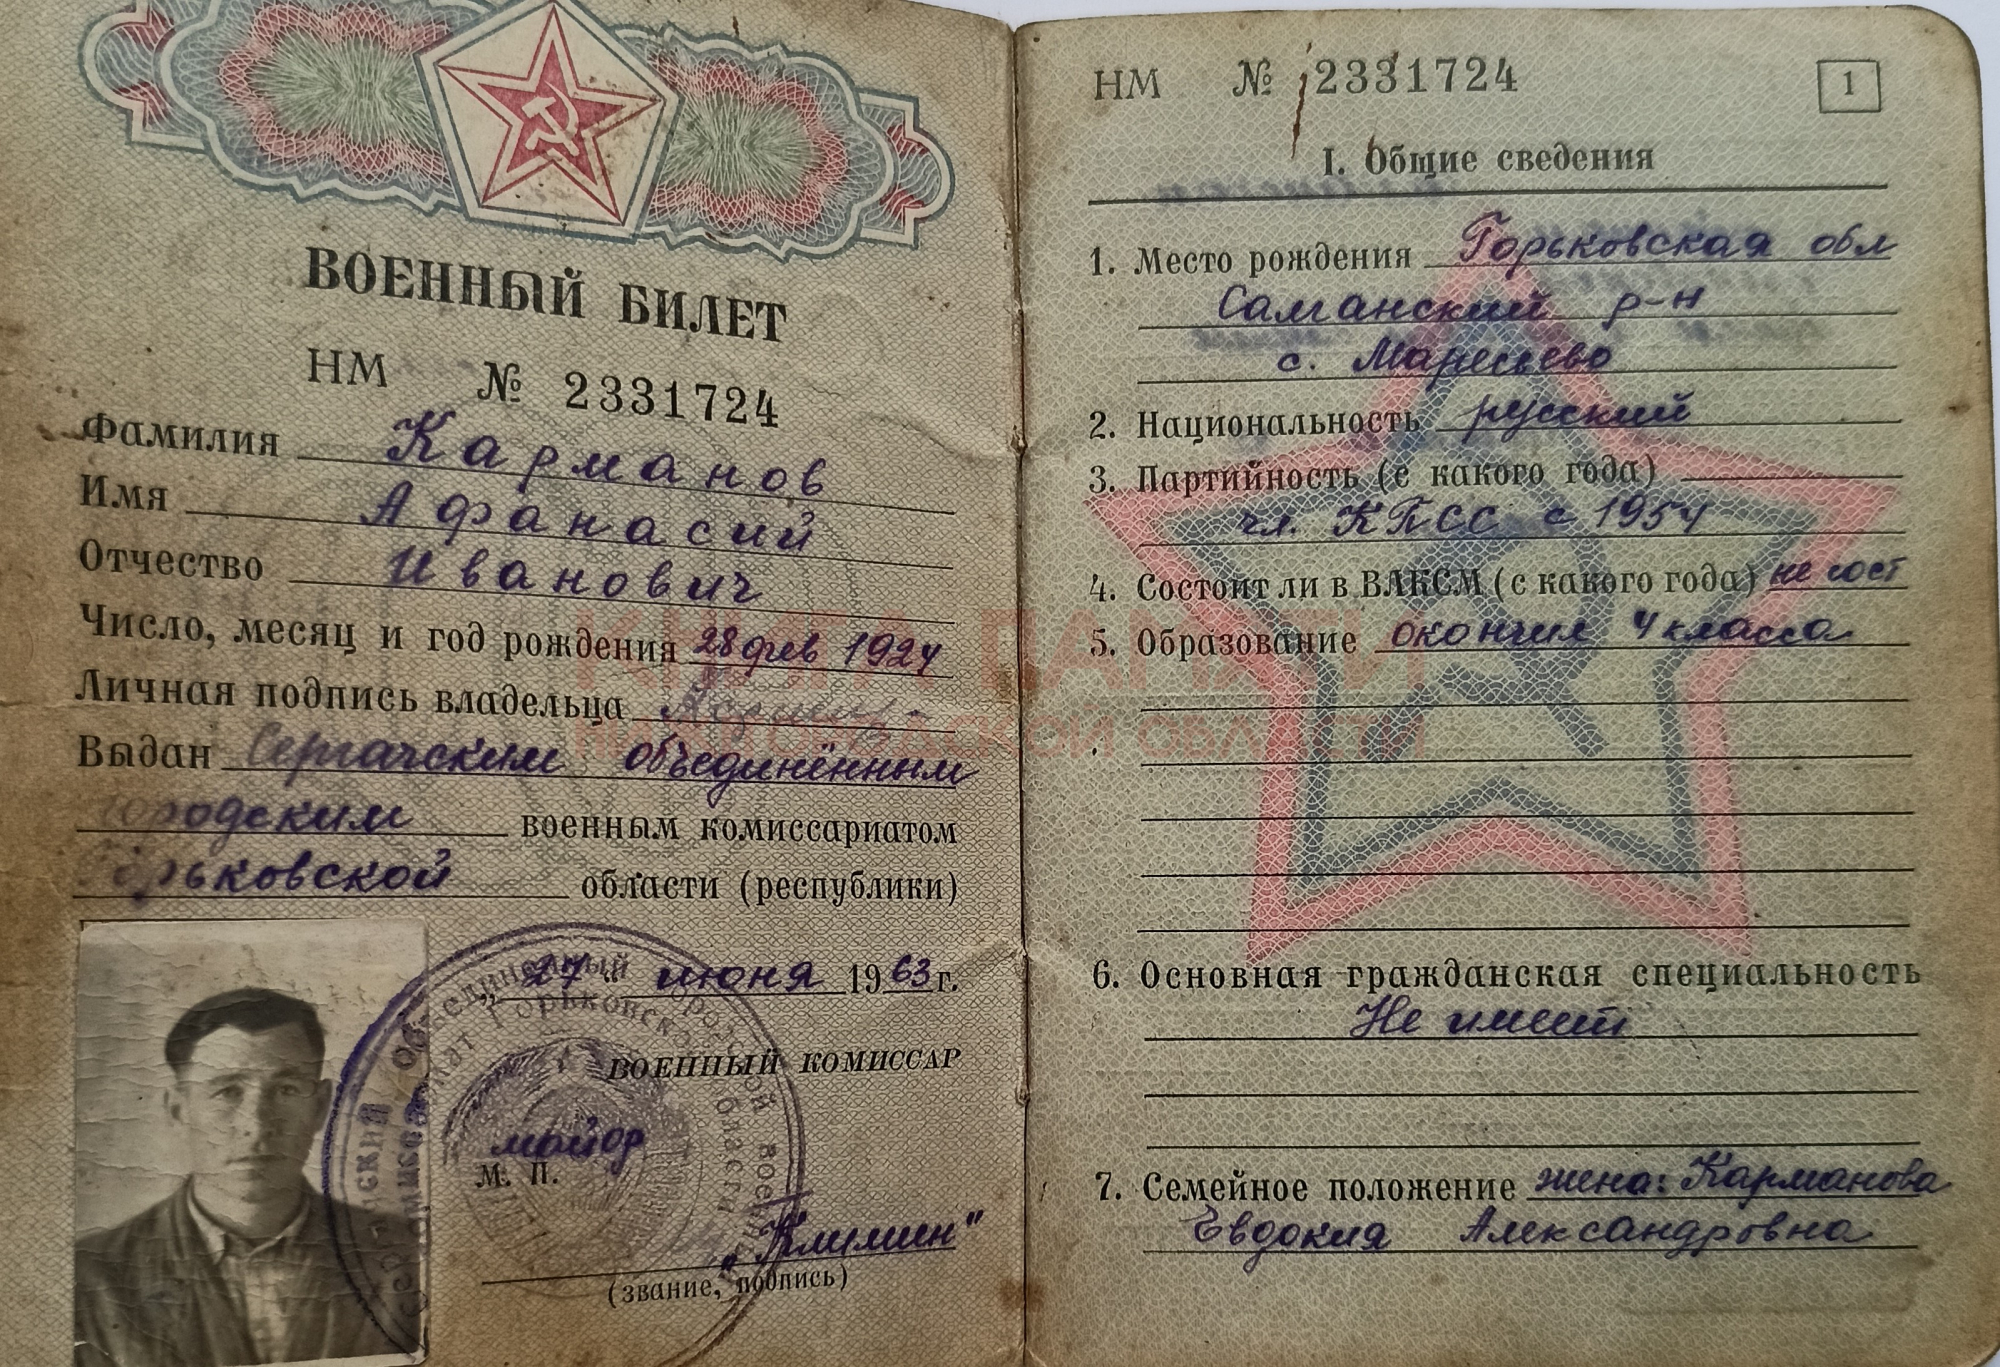 ВОЕННЫЙ БИЛЕТ
НМ № 2331724
Фамилия Карманов
Имя Афанасий
Отчество Иванович
Число, месяц и год рождения 28 фев 1924
Личная подпись владельца
Выдан Сергачским объединённым
городским военным комиссариатом
Горьковской области (республики)
„27“ июня 1963 г.
ВОЕННЫЙ КОМИССАР
майор
М. П.
„Климин"
(звание, подпись)
НМ № 2331724
1
I. Общие сведения
1. Место рождения Горьковская обл
Салганский р-н
с. Маресьево
2. Национальность русский
3. Партийность (с какого года)
чл. КПСС с 1954
4. Состоит ли в ВЛКСМ (с какого года) не сост
5. Образование окончил 4 класса
6. Основная гражданская специальность
Не имеет
7. Семейное положение жена: Карманова
Евдокия Александровна
КНИГА ПАМЯТИ
НИЖЕГОРОДСКОЙ ОБЛАСТИ